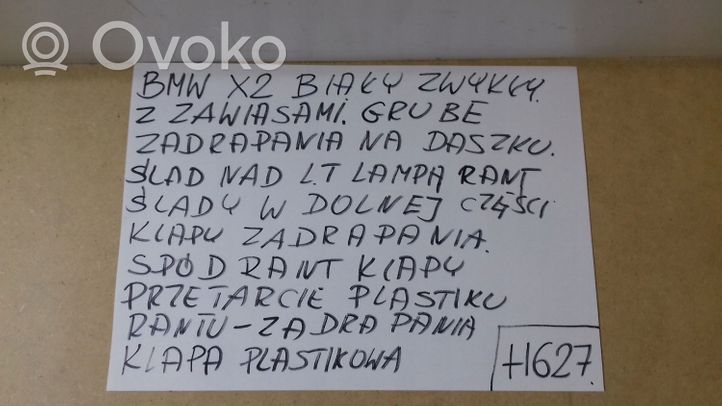 Ovoko
BMW X2 BIAŁY ZWYKŁY.
Z ZAWIASAMI. GRUBE
ZADRAPANIA NA DASZKU.
ŚLAD NAD L.T LAMPĄ RANT
ŚLADY W DOLNEJ CZĘŚCI
KLAPY ZADRAPANIA.
SPÓD RANT KLAPY
PRZETARCIE PLASTIKU
RANTU-ZADRAPANIA
KLAPA PLASTIKOWA
H627.